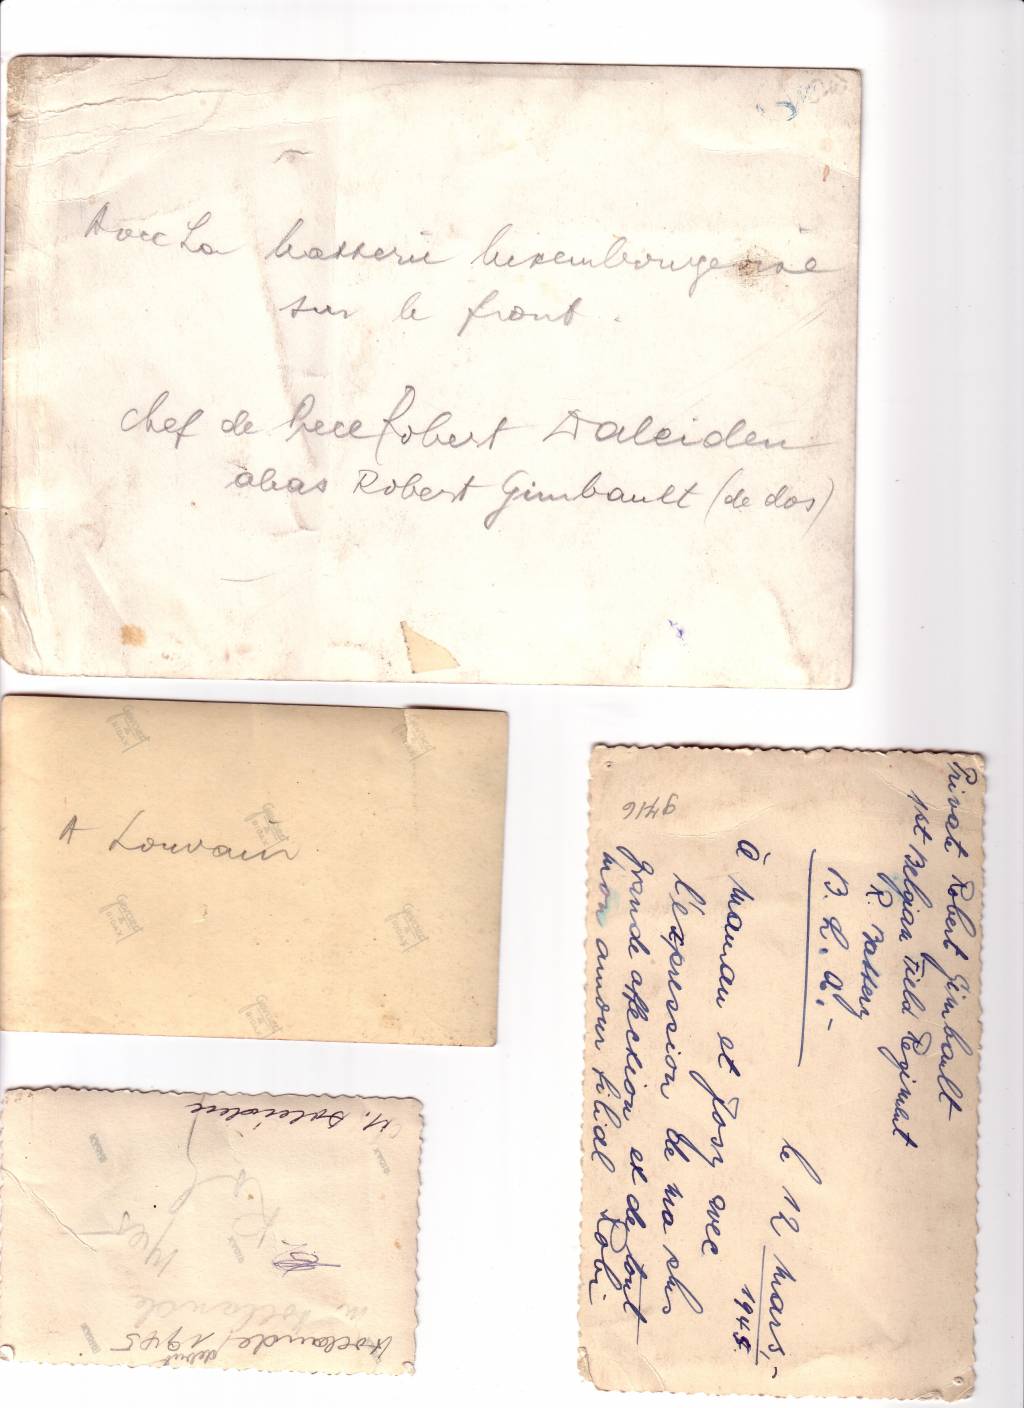 Avec La batterie luxembourgeoise
sur le front.
chef de Piece Robert Daleiden
alias Robert Gimbault (de dos)
A Louvain
GEVAERT
RIDAX
Privat Robert Gimbault
1st Belgian Field Regiment
R. Battery
B. L. A.-
le 12 mars,-
1945
à maman et Josy avec
l'expression de ma plus
grande affection et de tout
mon amour filial Robi
9716
M. Daleiden
RIDAX
Hollande
Hollande
début 1945